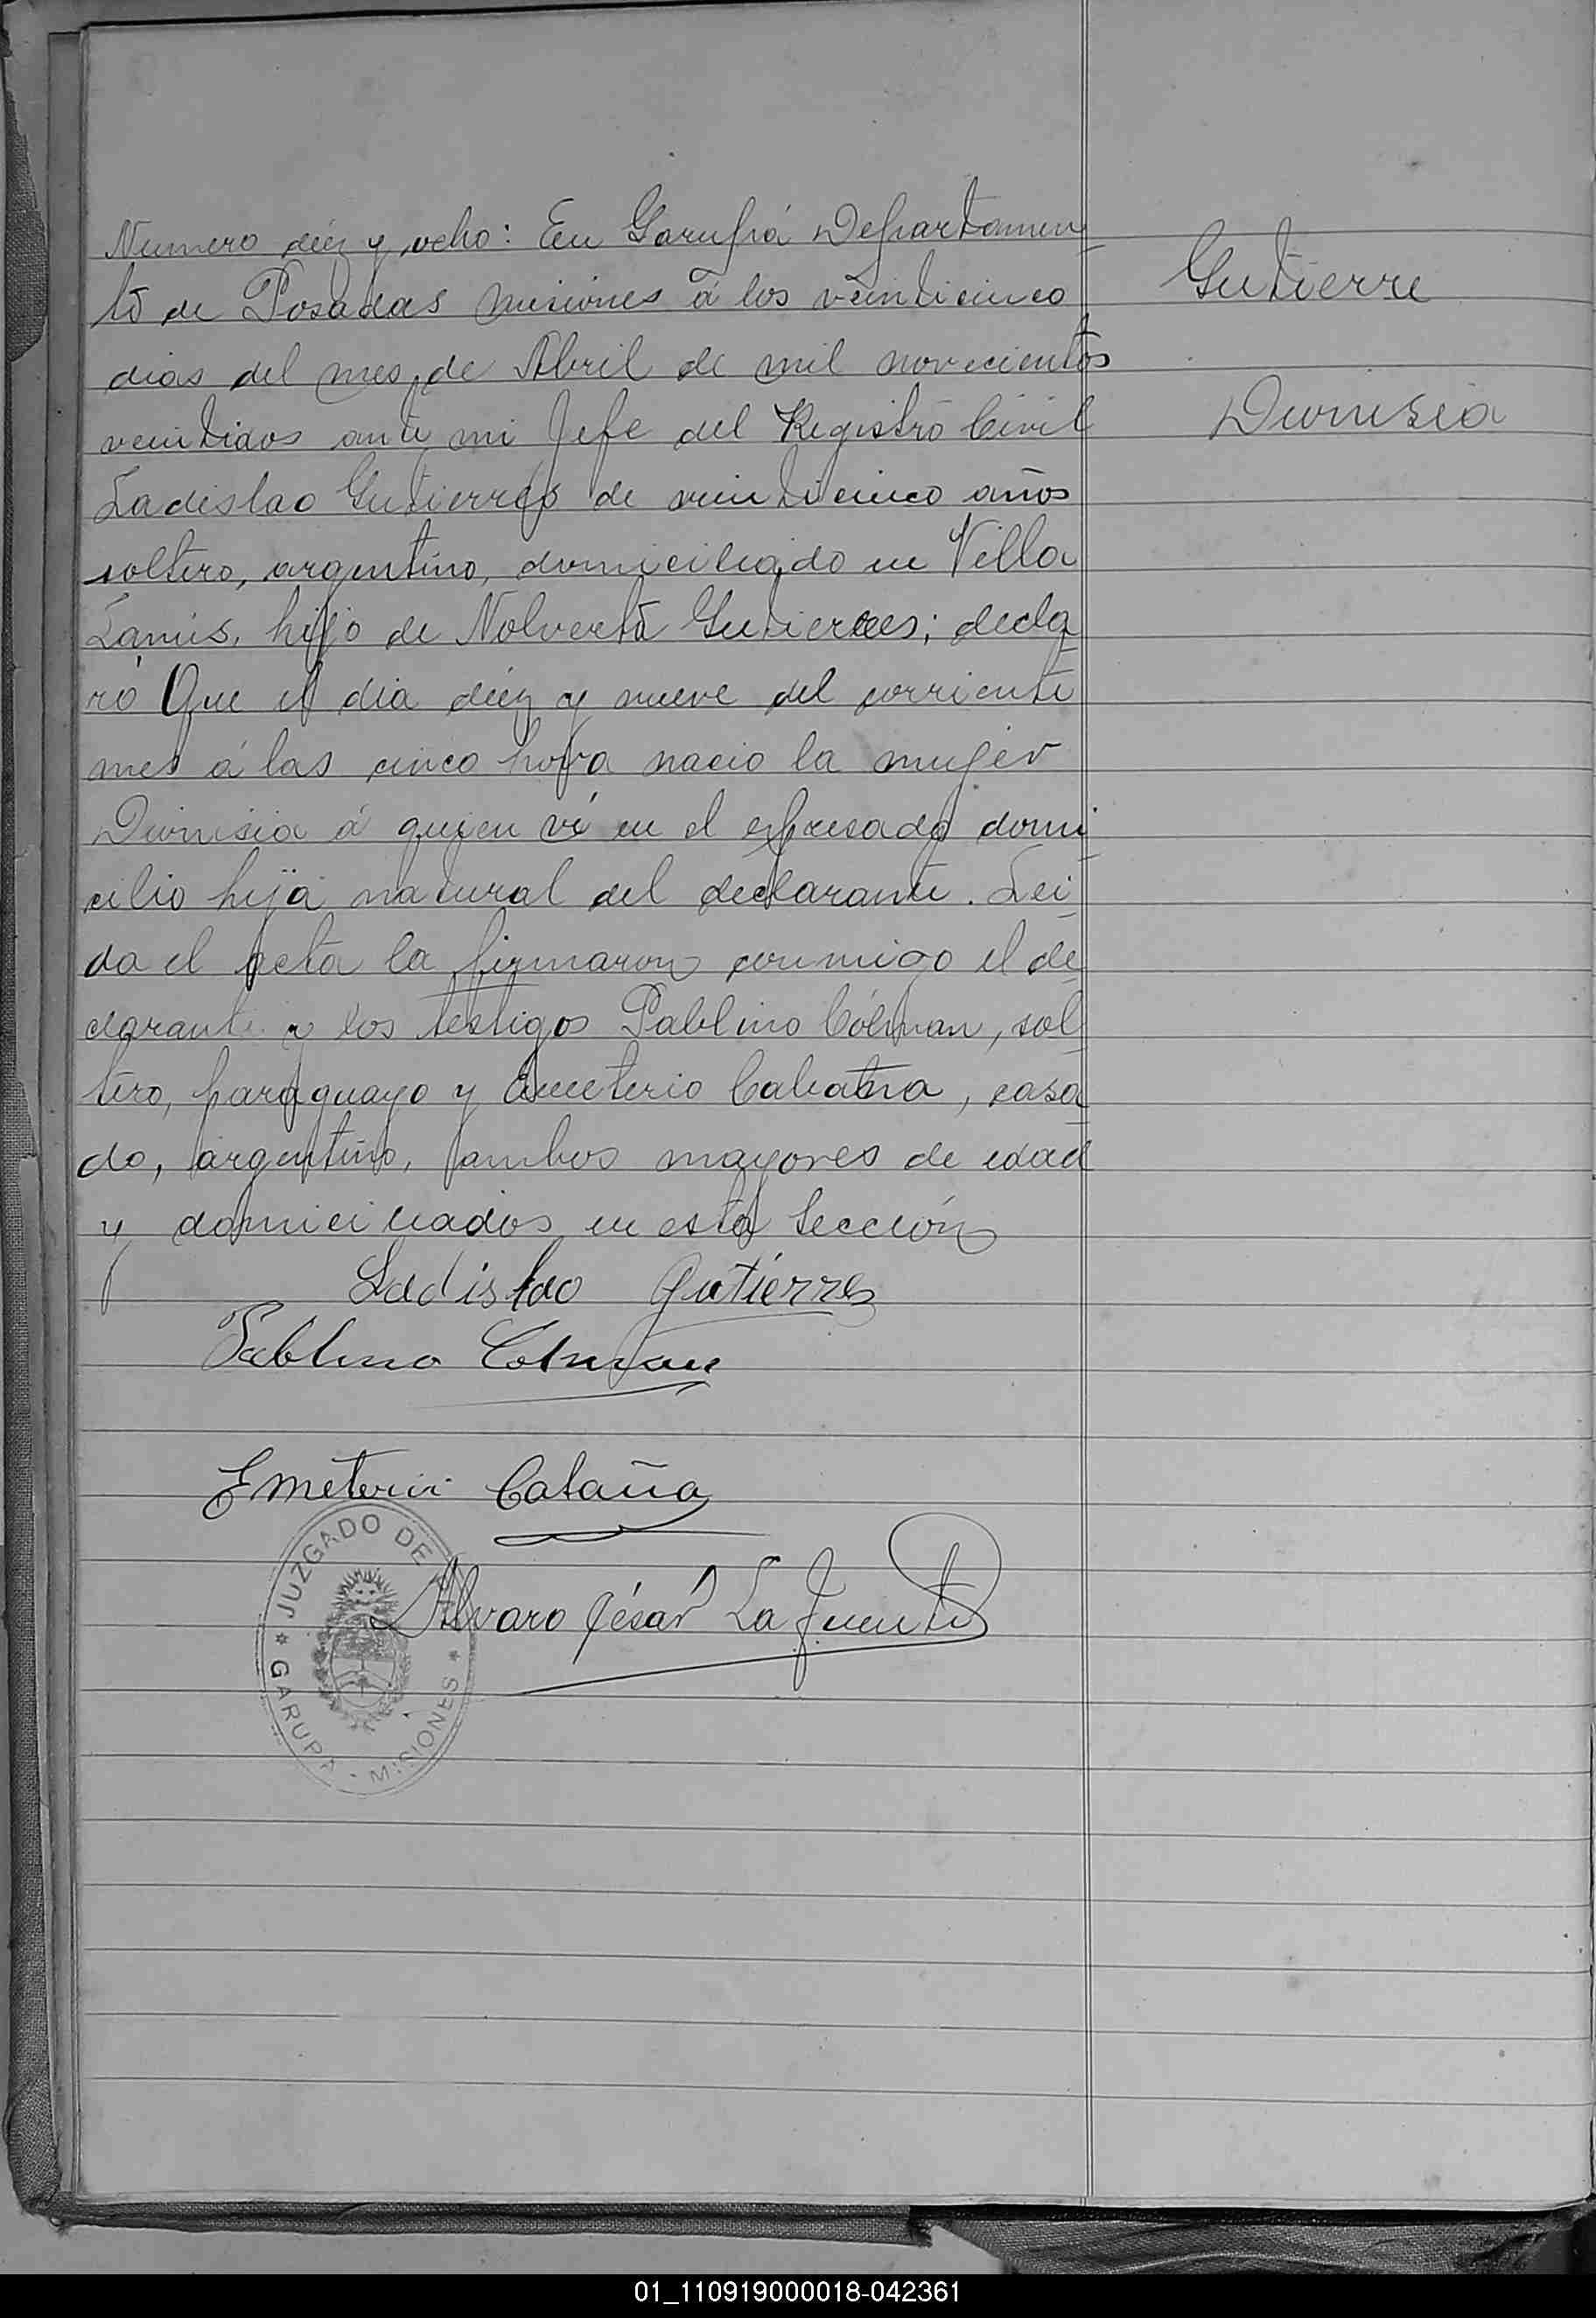 Numero diez y ocho: En Garupá Departamen
to de Posadas Misiones á los veinticinco
dias del mes de Abril de mil novecientos
veintidos ante mi Jefe del Registro Civil
Ladislao Gutierres de veinticinco años
soltero, argentino, domiciliado en Villa
Lanús, hijo de Nolverta Gutierres; decla
ró Que el dia diez y nueve del corriente
mes á las cinco hora nacio la mujer
Dionisia á quien vi en el expresado domi
cilio hija natural del declarante. Lei
da el acta la firmaron conmigo el de
clarante y los testigos Pablino Cólman, sol
tero, paraguayo y Emeterio, casa
do, argentino, ambos mayores de edad
y domiciliados en esta Sección
Ladislao Gutierres
Pablino Colman
Emeterio Cataña
Alvaro César La Fuente
JUZGADO DE
GARUPA - MISIONES
Gutierre
Dionisia
01_110919000018-042361